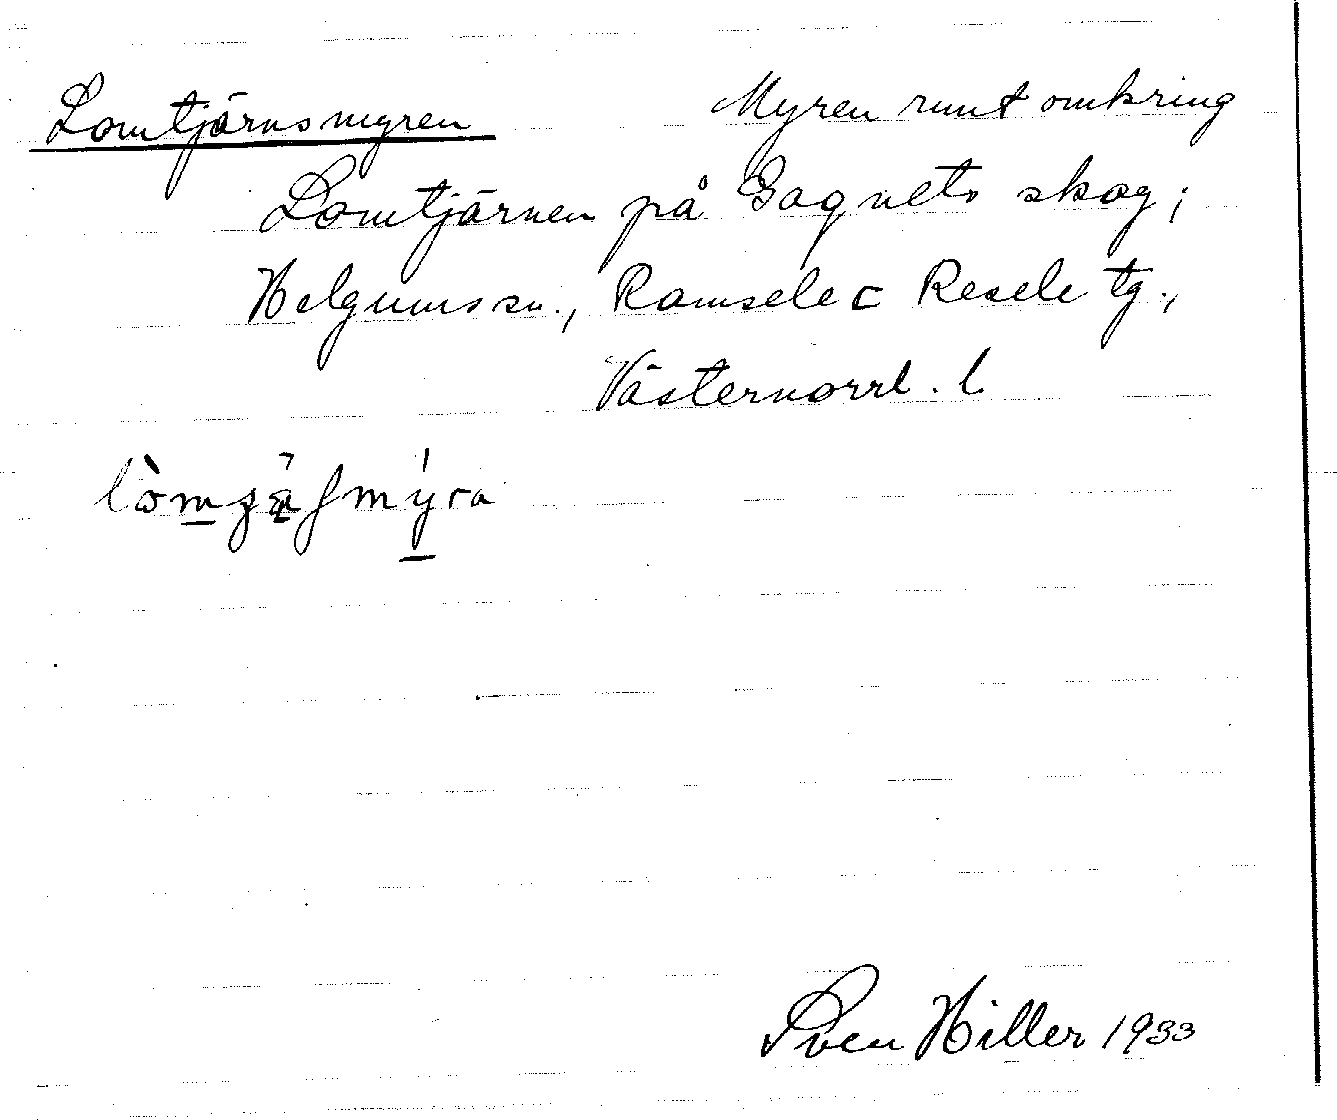 Lomtjärnsmyren Myren runt omkring
Lomtjärnen på Gagnets skog;
Helgums sn., Ramsele c Resele tg.,
Västernorrl. l
Sven Hiller 1933